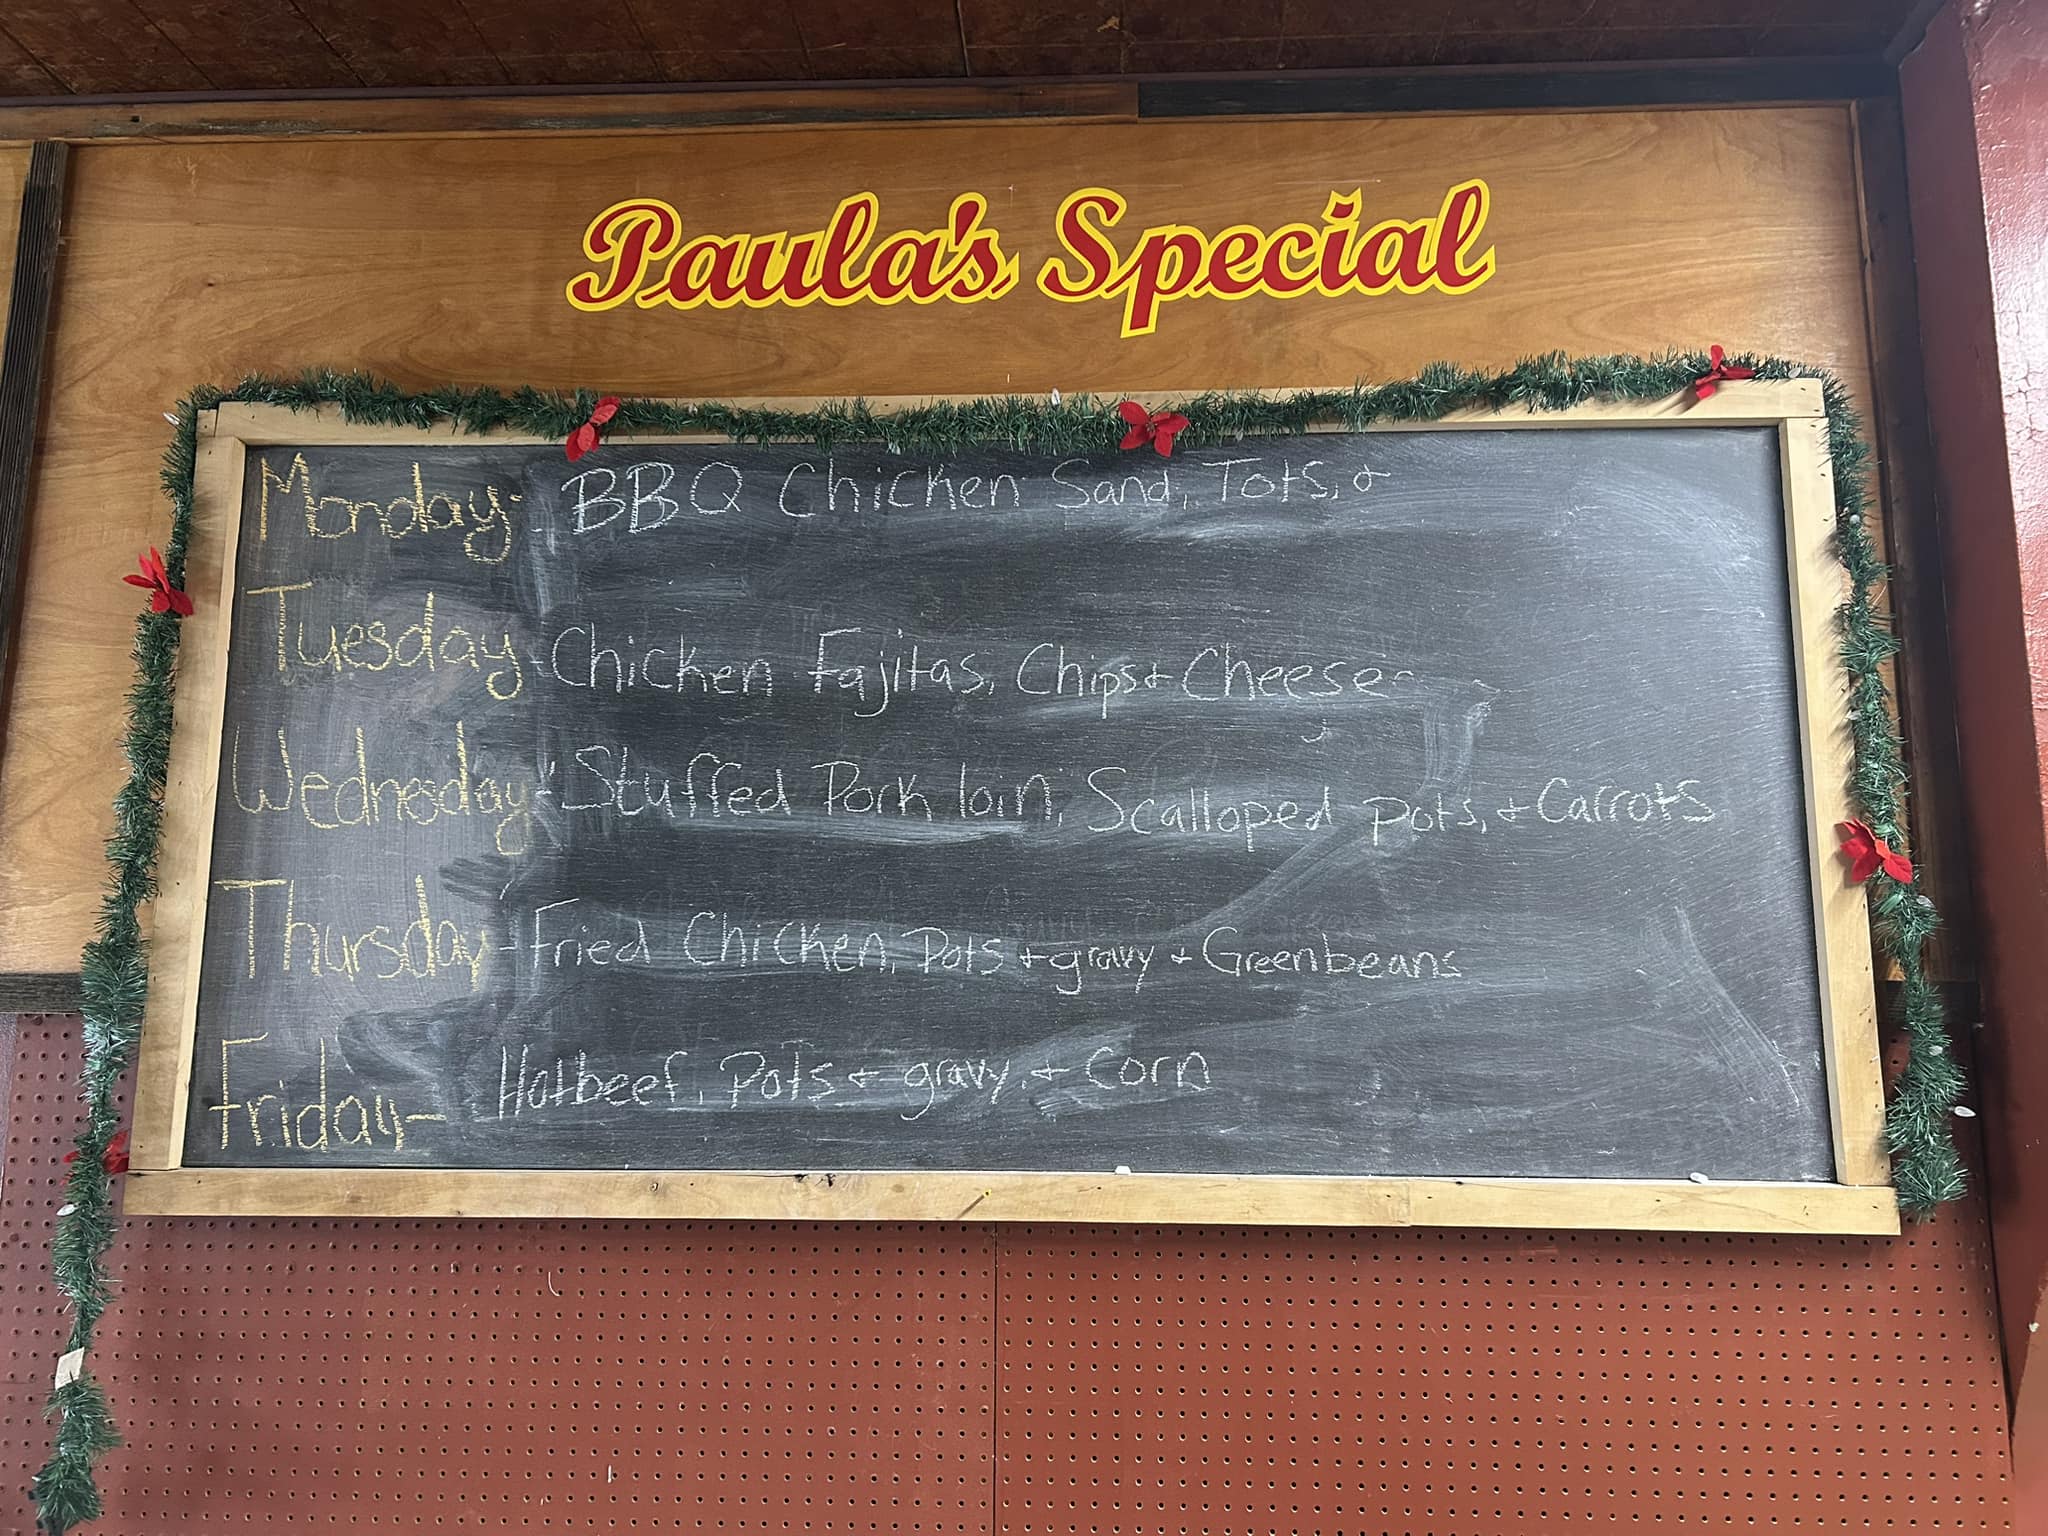 Paula's Special
Monday: BBQ Chicken Sand, Tots, &
Tuesday - Chicken Fajitas, Chips & Cheese
Wednesday: Stuffed Pork loin, Scalloped pots, & Carrots
Thursday - Fried Chicken, Pots & gravy & Greenbeans
Friday - Hotbeef, Pots & gravy, & Corn